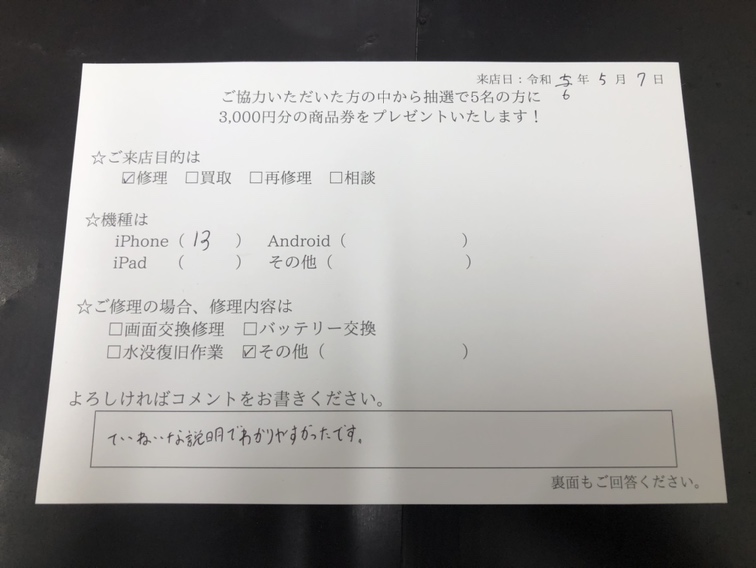 来店日：令和 5 年 5 月 7 日
6
ご協力いただいた方の中から抽選で5名の方に
3,000円分の商品券をプレゼントいたします！
☆ご来店目的は
☑修理 □買取 □再修理 □相談
☆機種は
iPhone（ 13 ） Android（ ）
iPad （ ） その他（ ）
☆ご修理の場合、修理内容は
□画面交換修理 □バッテリー交換
□水没復旧作業 ☑その他（ ）
よろしければコメントをお書きください。
ていねいな説明でわかりやすかったです。
裏面もご回答ください。